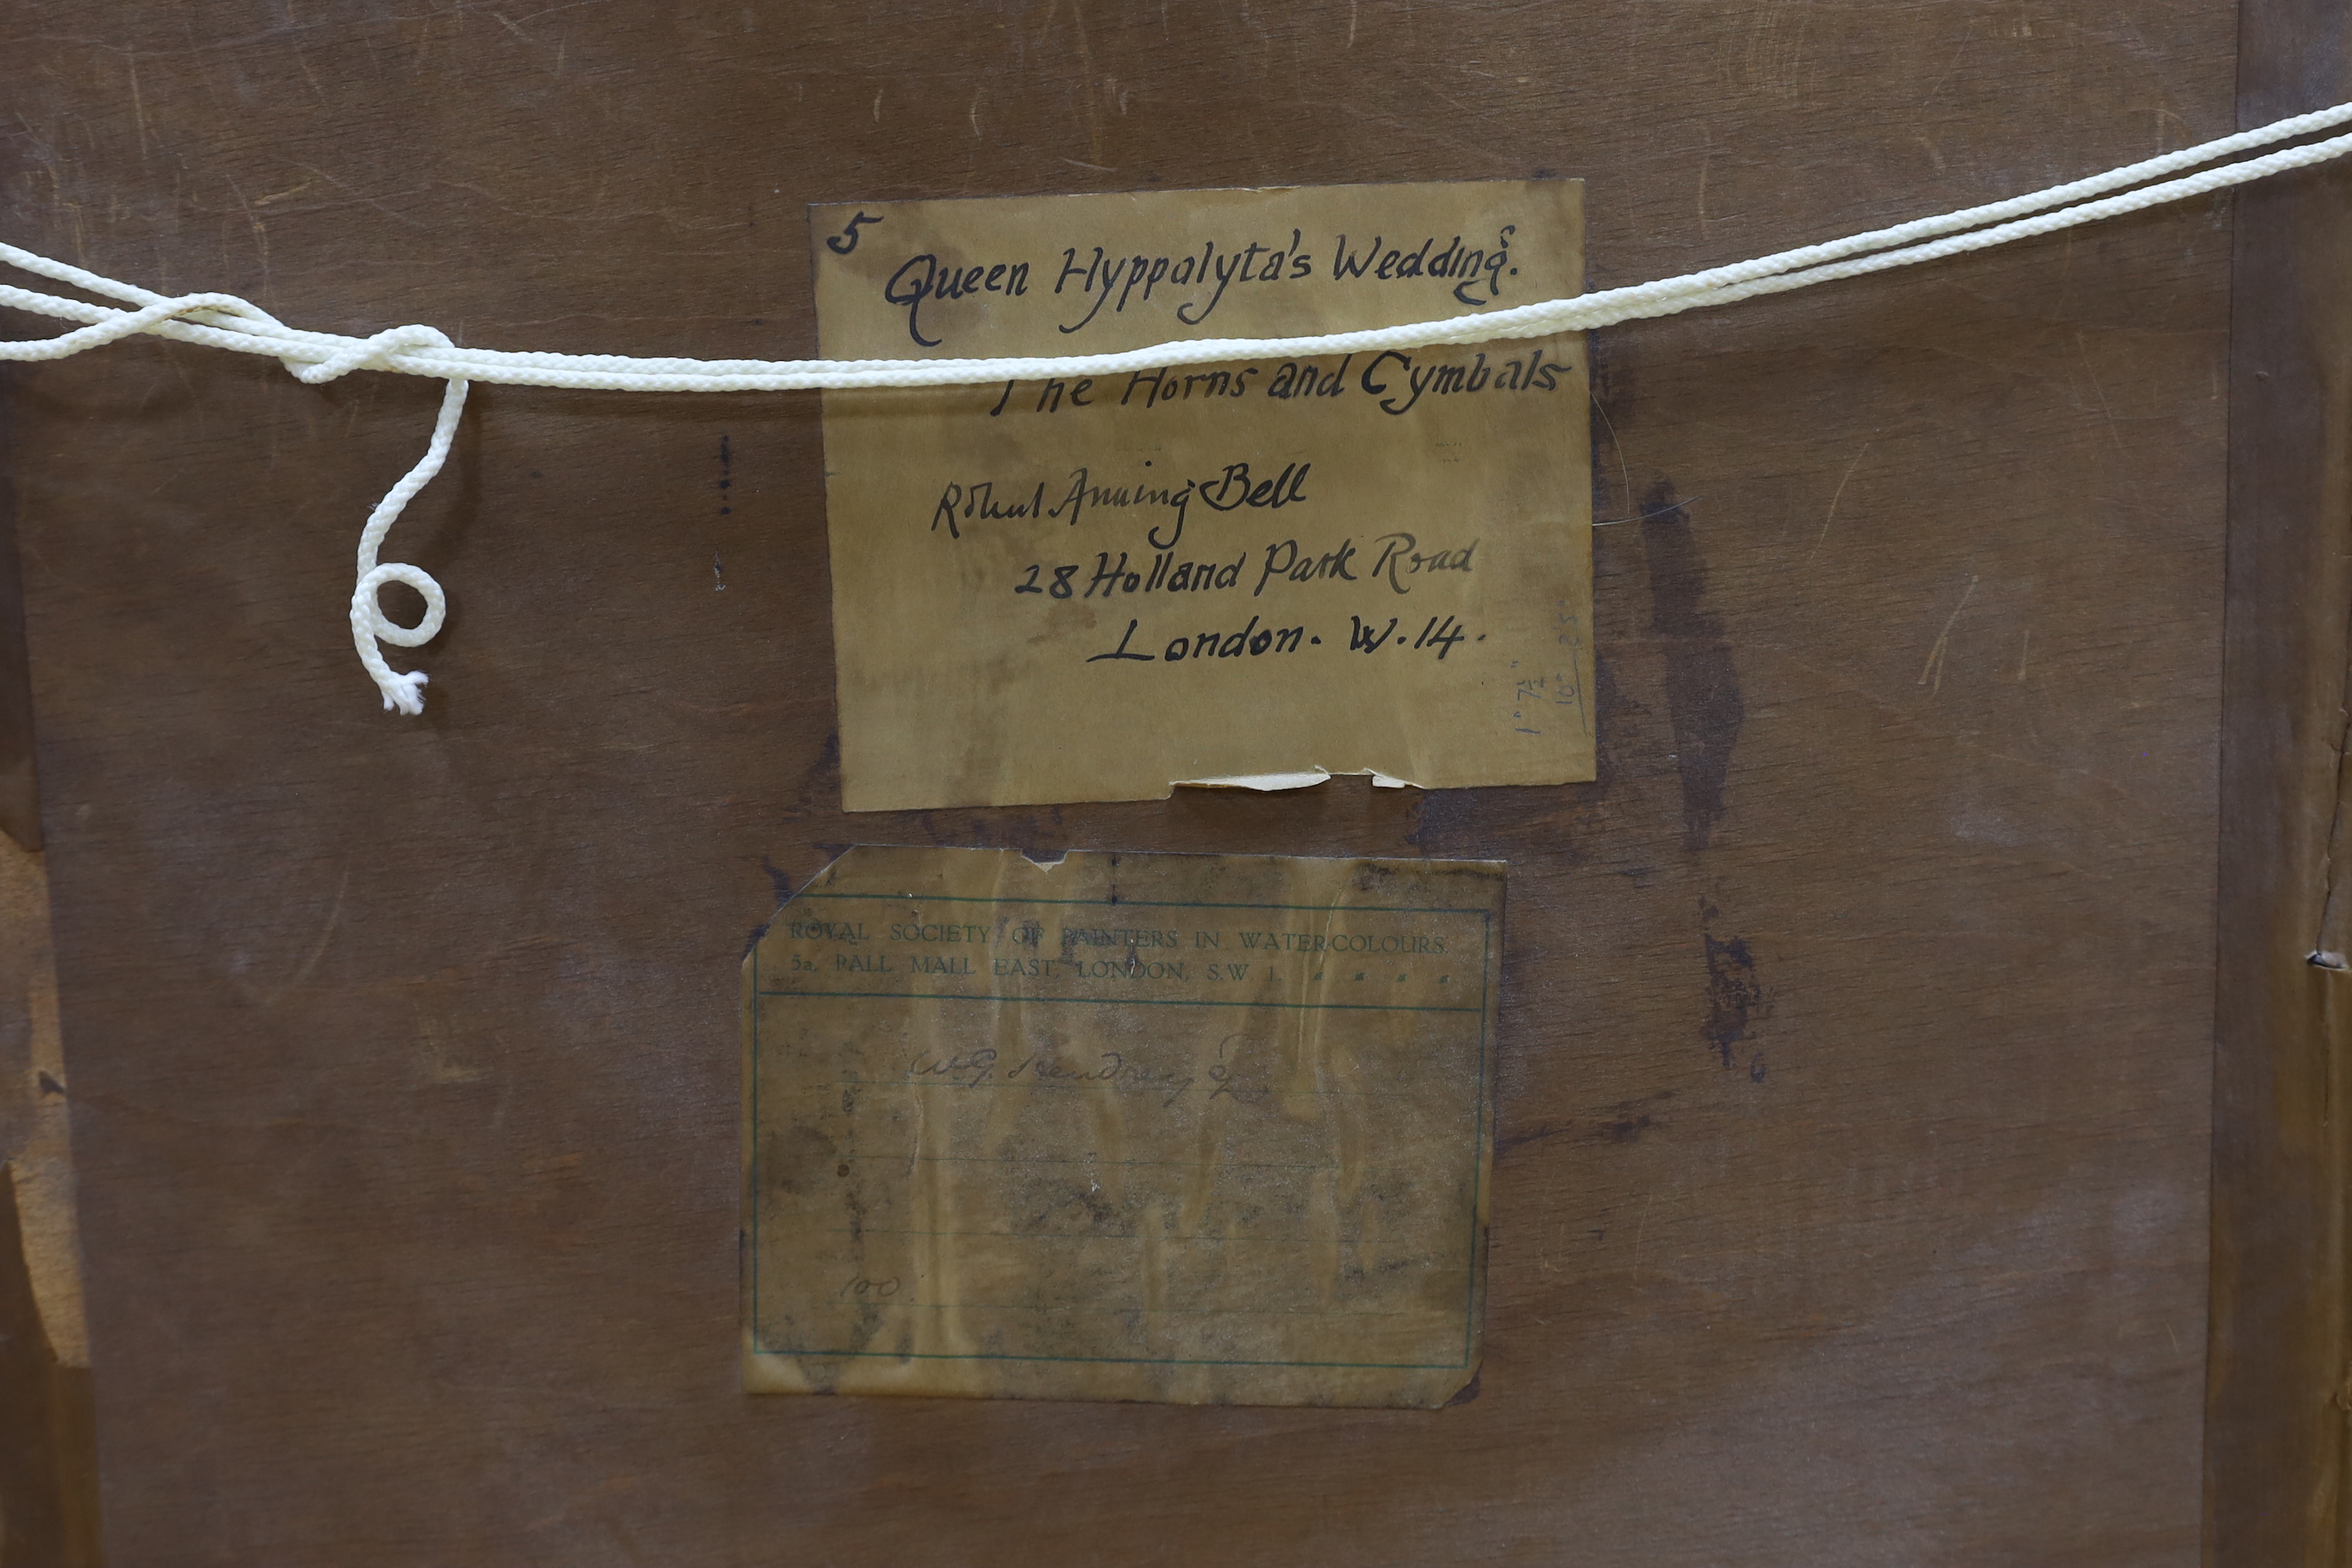 5
Queen Hyppolyta's Wedding.
The Horns and Cymbals
Robert Anning Bell
28 Holland Park Road
London. W.14.
1" 7½"
ROYAL SOCIETY OF PAINTERS IN WATER-COLOURS.
5a, PALL MALL EAST, LONDON, S.W. 1.
W.G. Hendrey Esq
100